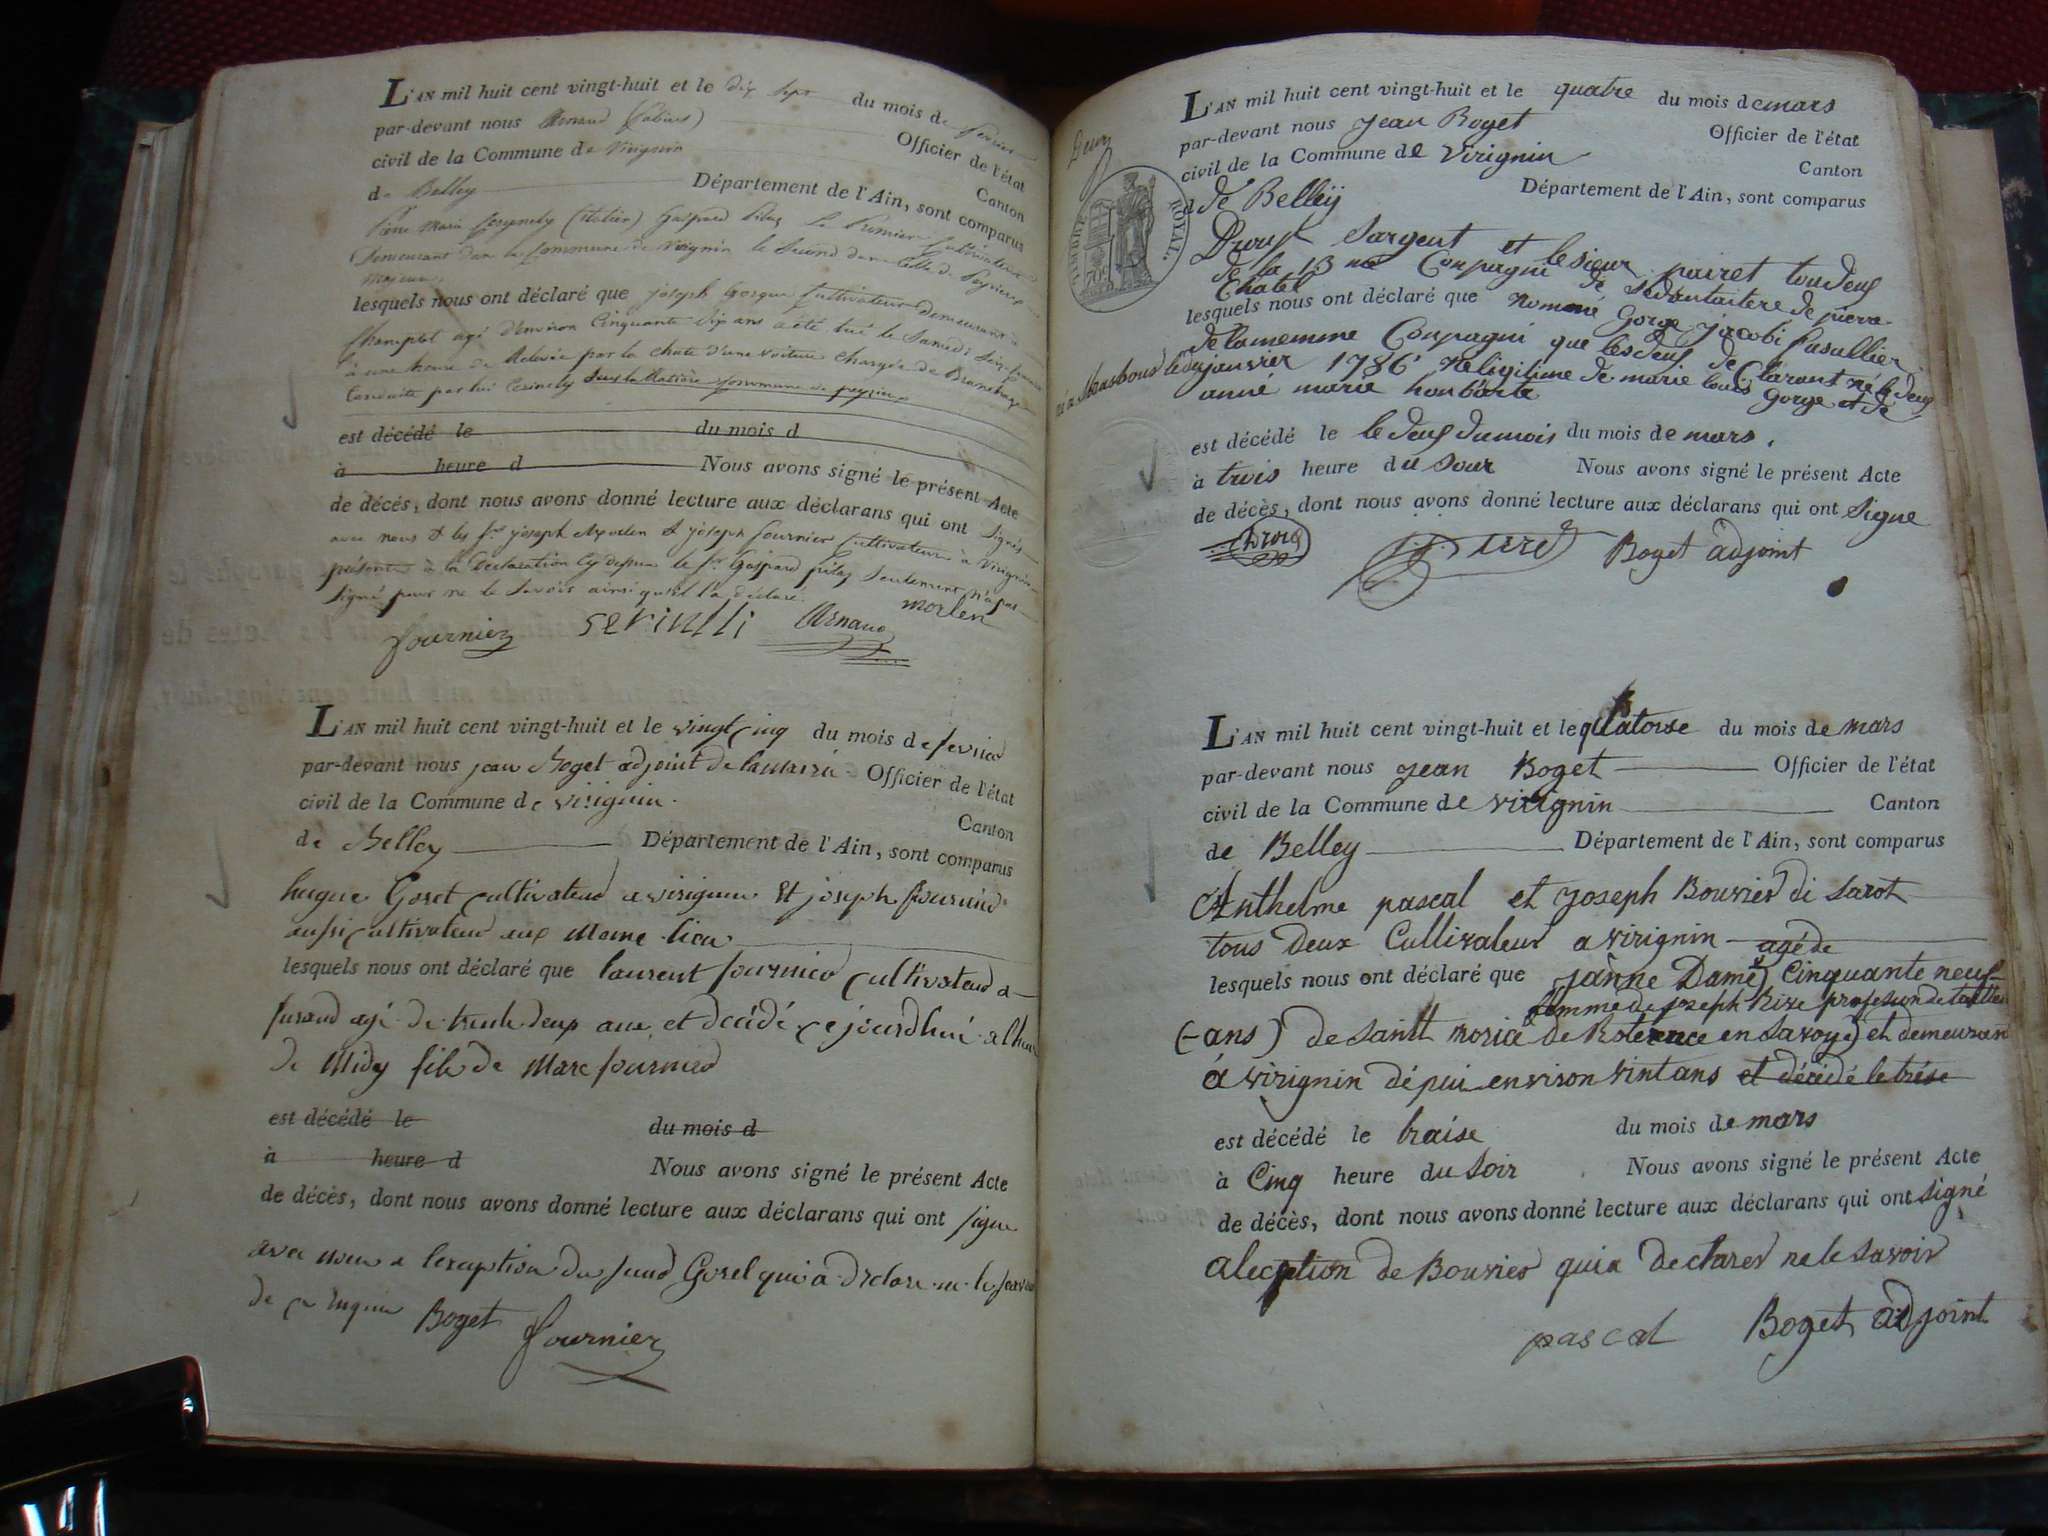 L'AN mil huit cent vingt-huit et le dix sept du mois de fevrier
par-devant nous Arnaud (fabius) Officier de l'état
civil de la Commune de Virignin Canton
de Belley Département de l'Ain, sont comparus
Pierre Marie (italien) Gaspard Pilaz Le Premier Cultivateur
Demeurant dans la Commune de Virignin le Second dans celle de Peyrieux
majeurs
lesquels nous ont déclaré que joseph cultivateur demeurant à
agé d'environ Cinquante dix ans a été tué le Samedi Seize
à une heure de Relevée par la chute d'une voiture chargée de Branchage
Conduite par lui
est décédé le du mois d
à heure d Nous avons signé le présent Acte
de décés, dont nous avons donné lecture aux déclarans qui ont Signés
avec nous & les Srs joseph & joseph fournier Cultivateurs à Virignin
présents à la Déclaration Cy dessus le Sr Gaspard pilaz Seulement n'a pas
Signé pour ne le Savoir ainsi qu'il l'a déclaré.
fournier Arnaud morlen
L'AN mil huit cent vingt-huit et le vingt cinq du mois de fevrier
par-devant nous jean Boget adjoint de la mairie Officier de l'état
civil de la Commune de virignin.
Canton
de Belley Département de l'Ain, sont comparus
hugue Goret cultivateur a virignin Et joseph fournier
aussi cultivateur aux meme lieu
lesquels nous ont déclaré que laurent fournier cultivateur a
agé de trente deux ans et décédé ce jourdhui a lheure
de Midy fils de Marc fournier
est décédé le du mois d
à heure d Nous avons signé le présent Acte
de décès, dont nous avons donné lecture aux déclarans qui ont signe
avec nous a lexception du Goret qui a declare ne le savoir
de ce enquis Boget fournier
Deux
TIMBRE ROYAL
L'AN mil huit cent vingt-huit et le quatre du mois de mars
par-devant nous jean Boget Officier de l'état
civil de la Commune de virignin Canton
d de Belley Département de l'Ain, sont comparus
Sargent et le sieur pairet tou deux
de la 13 me Conpagni de Sedantaitere de pierre
Chatel
lesquels nous ont déclaré que nommé Gorge jacobi fusallier
de la memme Conpagni que les deux de Clarant né le deux
né a le du janvier 1786 fils ligitime de marie louis Gorge et de
anne marie
est décédé le le deux du mois du mois de mars.
à trois heure du Soir Nous avons signé le présent Acte
de décès, dont nous avons donné lecture aux déclarans qui ont Signe
Boget adjoint
L'AN mil huit cent vingt-huit et le quatorse du mois de mars
par-devant nous jean Boget Officier de l'état
civil de la Commune de virignin Canton
de Belley Département de l'Ain, sont comparus
Anthelme pascal et joseph Bouvier di Sarot
tous deux Cultivateur a virignin
agé de
lesquels nous ont déclaré que jânne Damê Cinquante neuf
femme de joseph Rize profesion de tallier
(-ans) de saintt morice de Roterence en Savoye) et demeuran
á virignin dépui environ vint ans et décédé le trése
est décédé le traise du mois de mars
à Cinq heure du Soir Nous avons signé le présent Acte
de décès, dont nous avons donné lecture aux déclarans qui ont signé
a leception de Bouvier qui a declarer ne le Savoir
pascal Boget adjoint